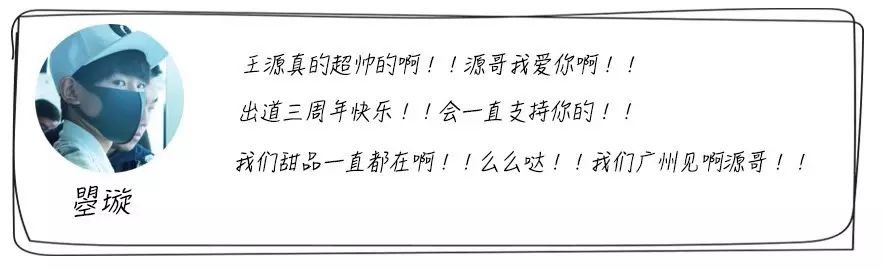 王源真的超帅的啊！！源哥我爱你啊！！
出道三周年快乐！！会一直支持你的！！
我们甜品一直都在啊！！么么哒！！我们广州见啊源哥！！
曌璇